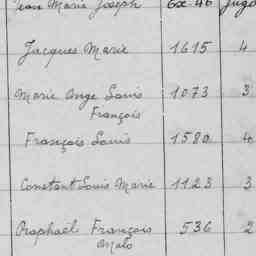 Jean Marie Joseph 6x. 46 Jugo
Jacques Marie 1615 4
Marie Ange Louis 1073 3
François
François Louis 1580 4
Constant Louis Marie 1123 3
Raphaël François 536 2
Malo